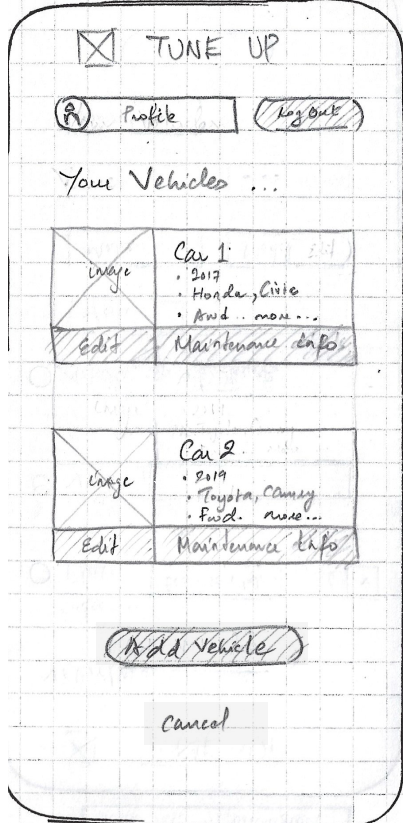 TUNE UP
Profile
Log Out
Your Vehicles ...
image
Car 1
• 2017
• Honda, Civic
• And.. more...
Edit
Maintenance Info
image
Car 2
• 2019
• Toyota, Camry
more...
Edit
Maintenance Info
Add Vehicle
Cancel